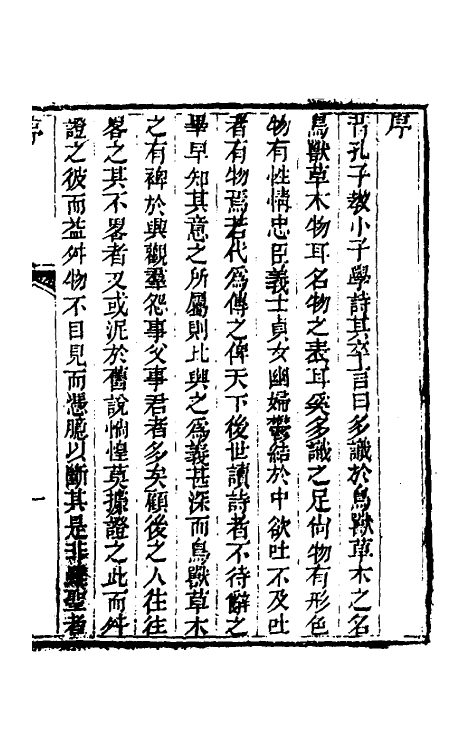 序
昔孔子教小子學詩其卒言曰多識於鳥獸草木之名
鳥獸草木物耳名物之表耳奚多識之足尚物有形色
物有性情忠臣義士貞女幽婦鬱結於中欲吐不及吐
者有物焉若代爲傳之俾天下後世讀詩者不待辭之
畢早知其意之所屬則比與之爲義甚深而鳥獸草木
之有裨於興觀羣怨事父事君者多矣顧後之人往往
畧之其不畧者又或泥於舊說惝惶莫據證之此而舛
證之彼而益舛物不目見而憑臆以斷其是非雖聖者
序
一